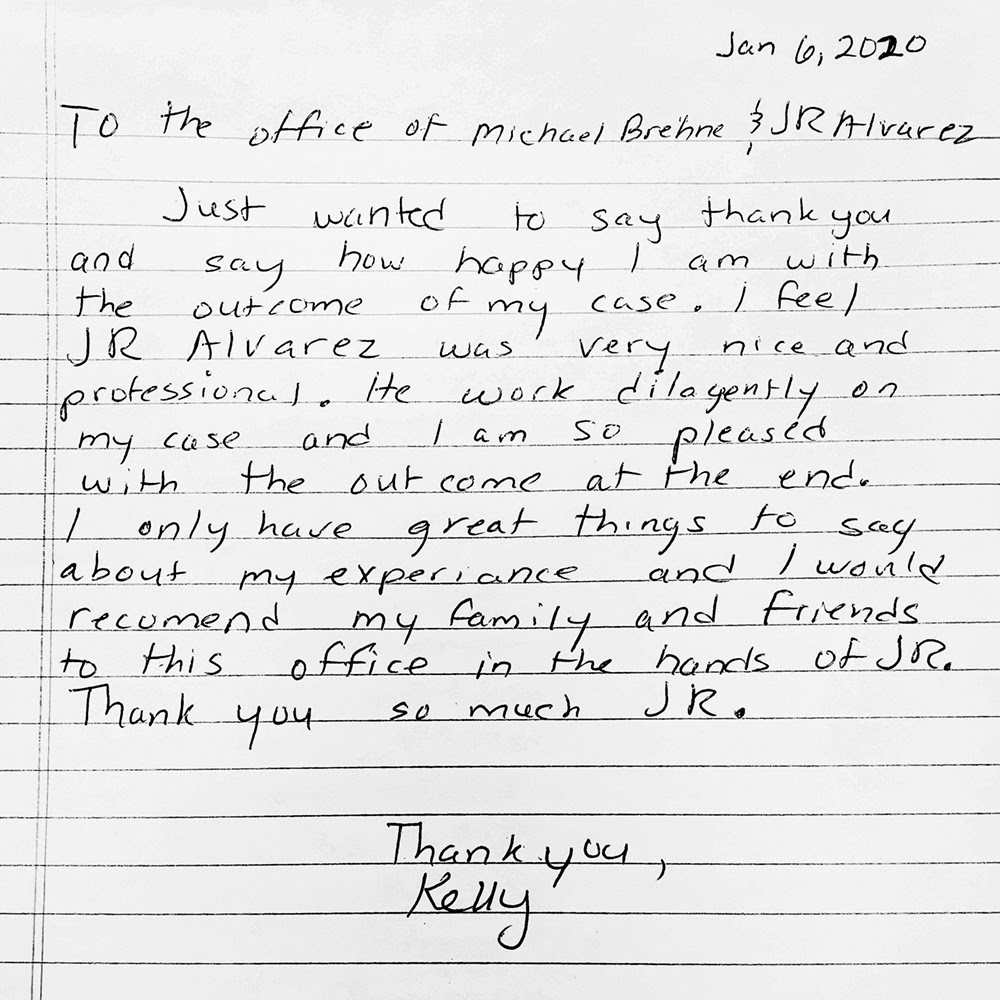 Jan 6, 2020
To the office of Michael Brehne & JR Alvarez
Just wanted to say thank you
and say how happy I am with
the outcome of my case. I feel
JR Alvarez was very nice and
professional. He work dilagently on
my case and I am so pleased
with the out come at the end.
I only have great things to say
about my experiance and I would
recomend my family and friends
to this office in the hands of JR.
Thank you so much JR.
Thank you,
Kelly